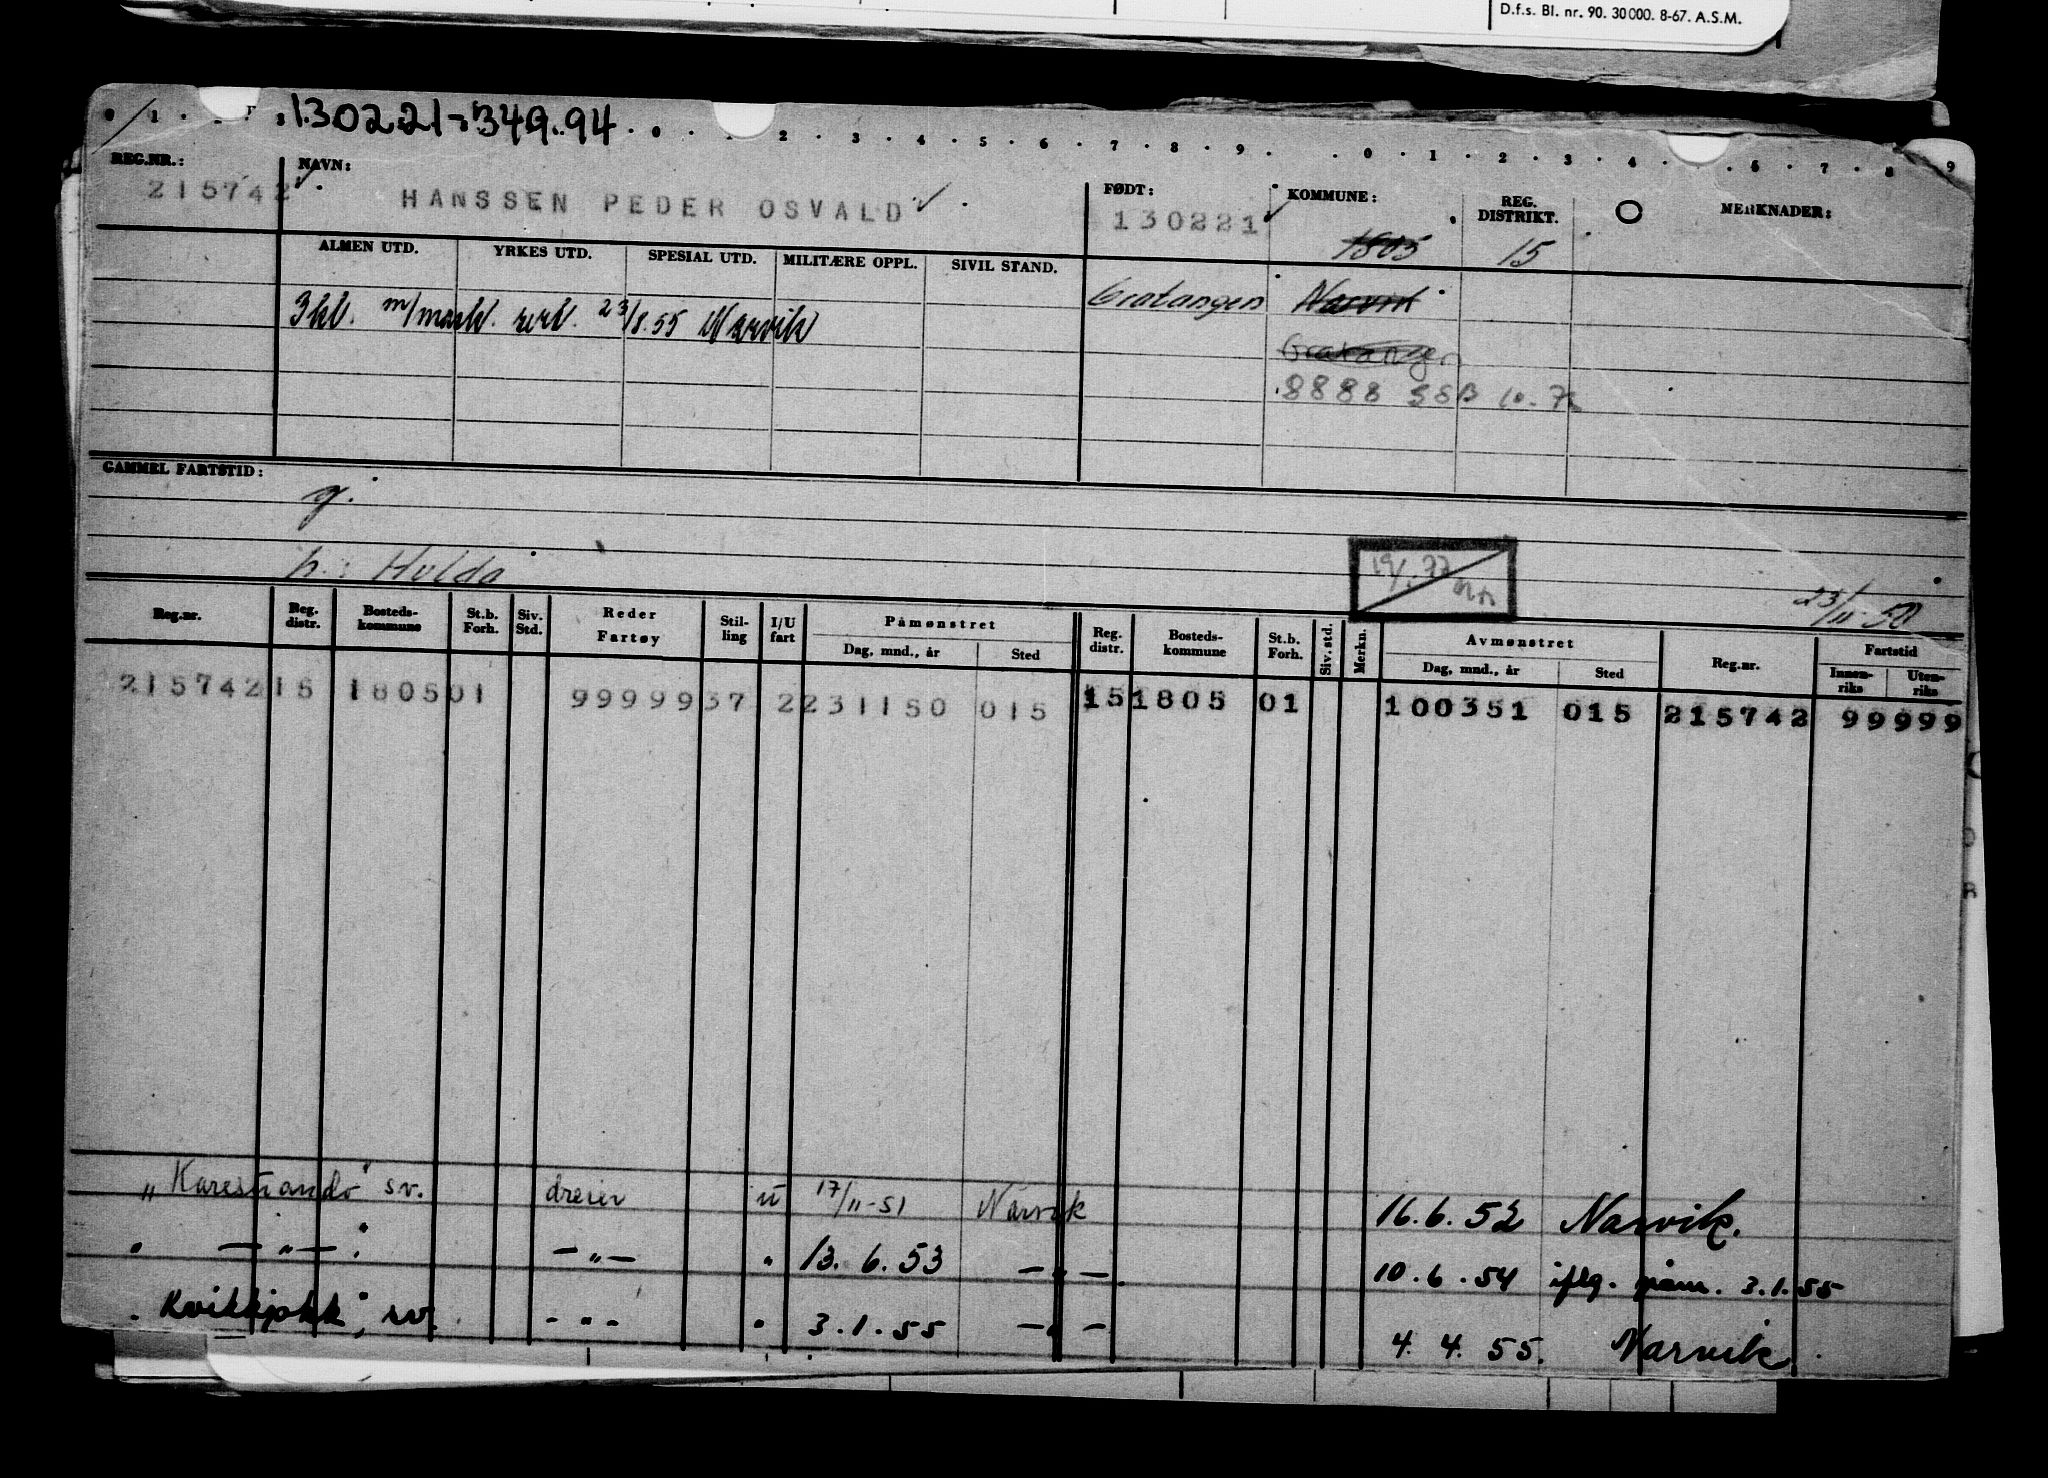 D.f.s. Bl. nr. 90. 30000. 8-67. A.S.M.
130221-349.94
REG.NR.: NAVN: FØDT: KOMMUNE: REG. DISTRIKT. MERKNADER:
215742 HANSSEN PEDER OSVALD 130221 1805 15
ALMEN UTD. YRKES UTD. SPESIAL UTD. MILITÆRE OPPL. SIVIL STAND.
Gratangen Narvik
3kl. m/mask. sert. 23/8.55 Narvik
Gratangen
8888 SSB 10.72
GAMMEL FARTSTID:
g.
h.: Hulda
19/1.77
23/11-50
Reg.nr. Reg. distr. Bosteds-kommune St.b. Forh. Siv. Std. Reder Fartøy Stil-ling I/U fart Påmønstret Dag, mnd., år Sted Reg. distr. Bosteds-kommune St.b. Forh. Siv. std. Merkn. Avmønstret Dag, mnd., år Sted Reg.nr. Fartstid Innen-riks Uten-riks
215742 15 1805 01 9999937 2 231150 015 15 1805 01 100351 015 215742 99999
„Karesuando" sv. dreier u 17/11-51 Narvik 16.6.52 Narvik.
" — „ — " — „ — " 13.6.53 — „ — 10.6.54 iflg. påm. 3.1.55
"Kvikkjokk", sv. - " - " 3.1.55 — " — 4.4.55. Narvik.